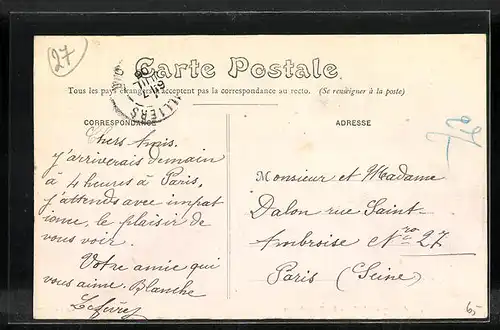 27
Carte Postale
Tous les pays étrangers n'acceptent pas la correspondance au recto. (Se renseigner à la poste)
CORRESPONDANCE
ADRESSE
Chers Amis.
J'arriverais demain
à 4 heures à Paris,
j'attends avec impat
ience, le plaisir de
vous voir.
Votre amie qui
vous aime. Blanche
Lefevre
Monsieur et Madame
Dalon rue Saint-
Ambroise Nro 27
Paris (Seine)
65